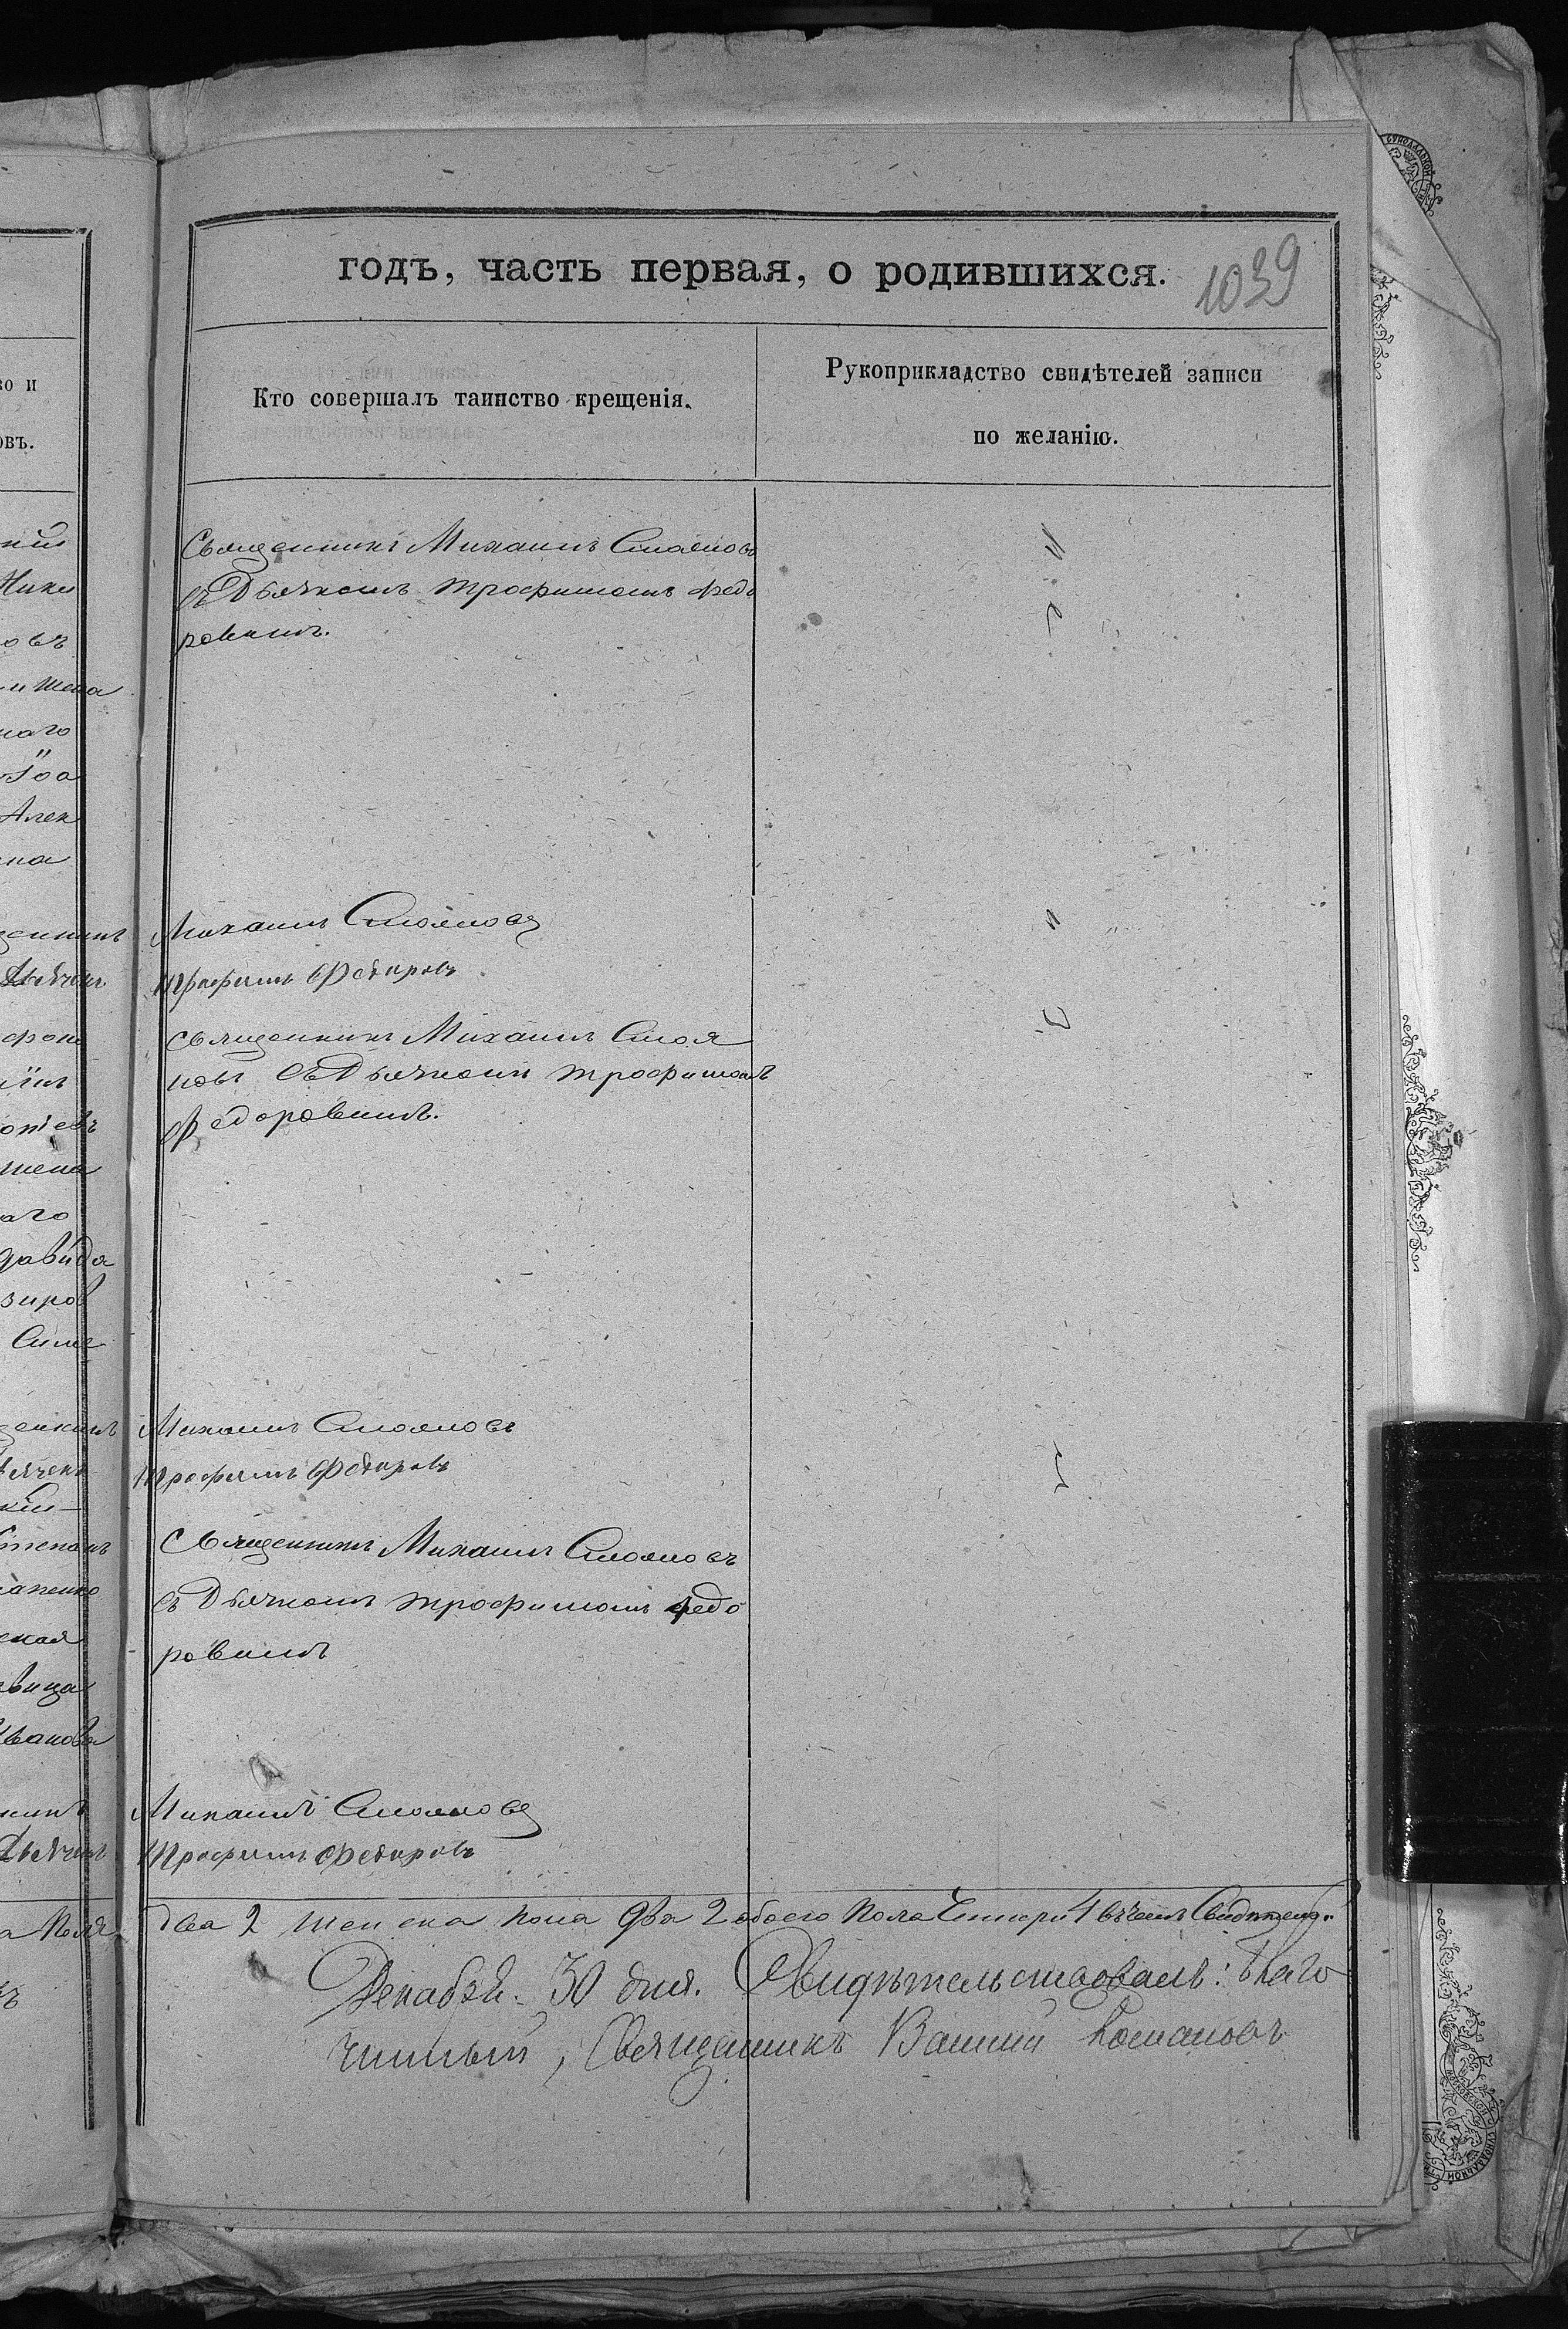 годъ, часть первая, о родившихся.
1039
Кто совершалъ таинство крещенія.
Рукоприкладство свидѣтелей записи
по желанію.
Священникъ Михаилъ Стояновъ
съ Дьячкомъ Трофимомъ Федо
ровымъ.
Михаилъ Стояновъ
Трофимъ Федоровъ
Священникъ Михаилъ Стоя
новъ съ Дьячкомъ Трофимомъ
Федоровымъ.
Михаилъ Стояновъ
Трофимъ Федоровъ
Священникъ Михаилъ Стояновъ
съ Дьячкомъ Трофимомъ Федо
ровымъ
Михаилъ Стояновъ
Трофимъ Федоровъ
два 2 женска пола два 2 обоего пола 4 въ чемъ
Декабря 30 дня. Свидѣтельствовалъ: Благо
чинный, Священникъ